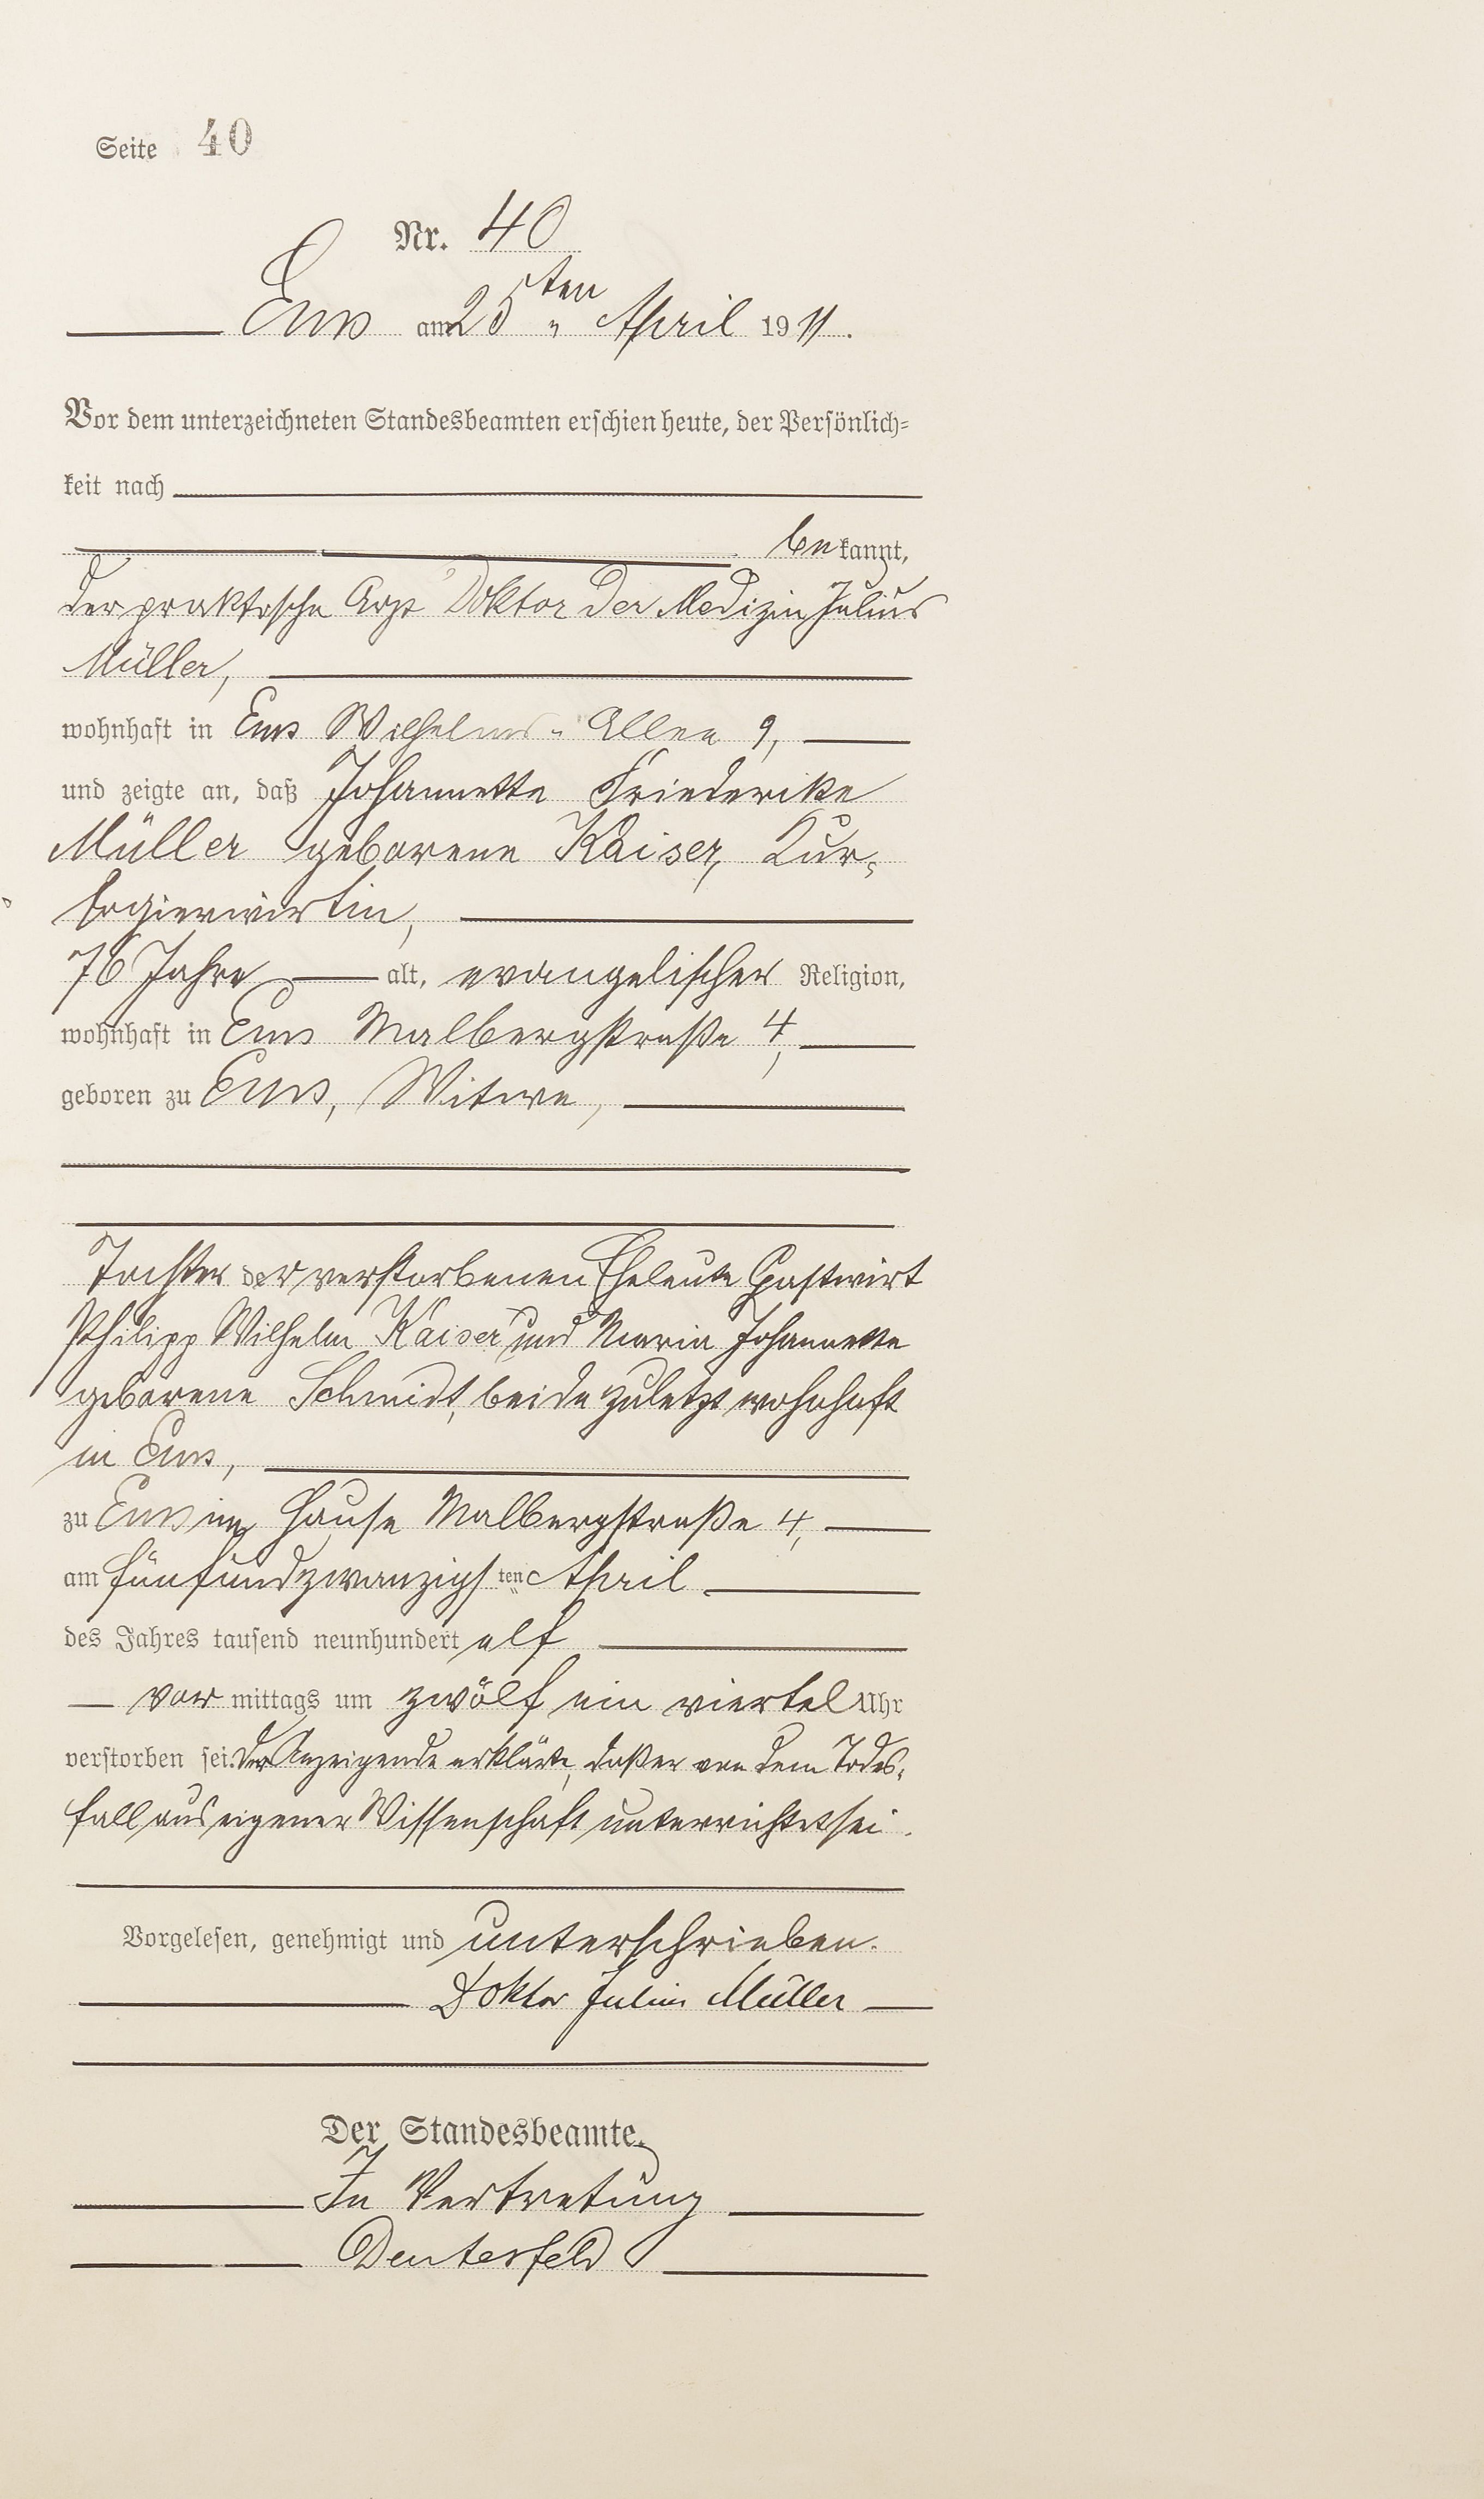 Seite 40
Nr. 40
Ems am 25ten April 1911.
Vor dem unterzeichneten Standesbeamten erschien heute, der Persönlich=
keit nach
bekannt,
der praktische Arzt Doktor der Medizin Julius
Müller,
wohnhaft in Ems Wilhelms-Allee 9,
und zeigte an, daß Johannette Friederike
Müller geborene Kaiser, Kur-
logierwirtin,
76 Jahre alt, evangelischer Religion,
wohnhaft in Ems Malbergstraße 4,
geboren zu Ems, Witwe,
Tochter der verstorbenen Eheleute Gastwirt
Philipp Wilhelm Kaiser und Maria Johannette
geborene Schmidt, beide zuletzt wohnhaft
in Ems,
zu Ems im Hause Malbergstraße 4,
am fünfundzwanzigsten April
des Jahres tausend neunhundert elf
vormittags um zwölf ein viertel Uhr
verstorben sei. Der Anzeigende erklärte, daß er von dem Todes-
fall aus eigener Wissenschaft unterrichtet sei.
Vorgelesen, genehmigt und unterschrieben.
Doktor Julius Müller
Der Standesbeamte.
In Vertretung
Deutesfeld